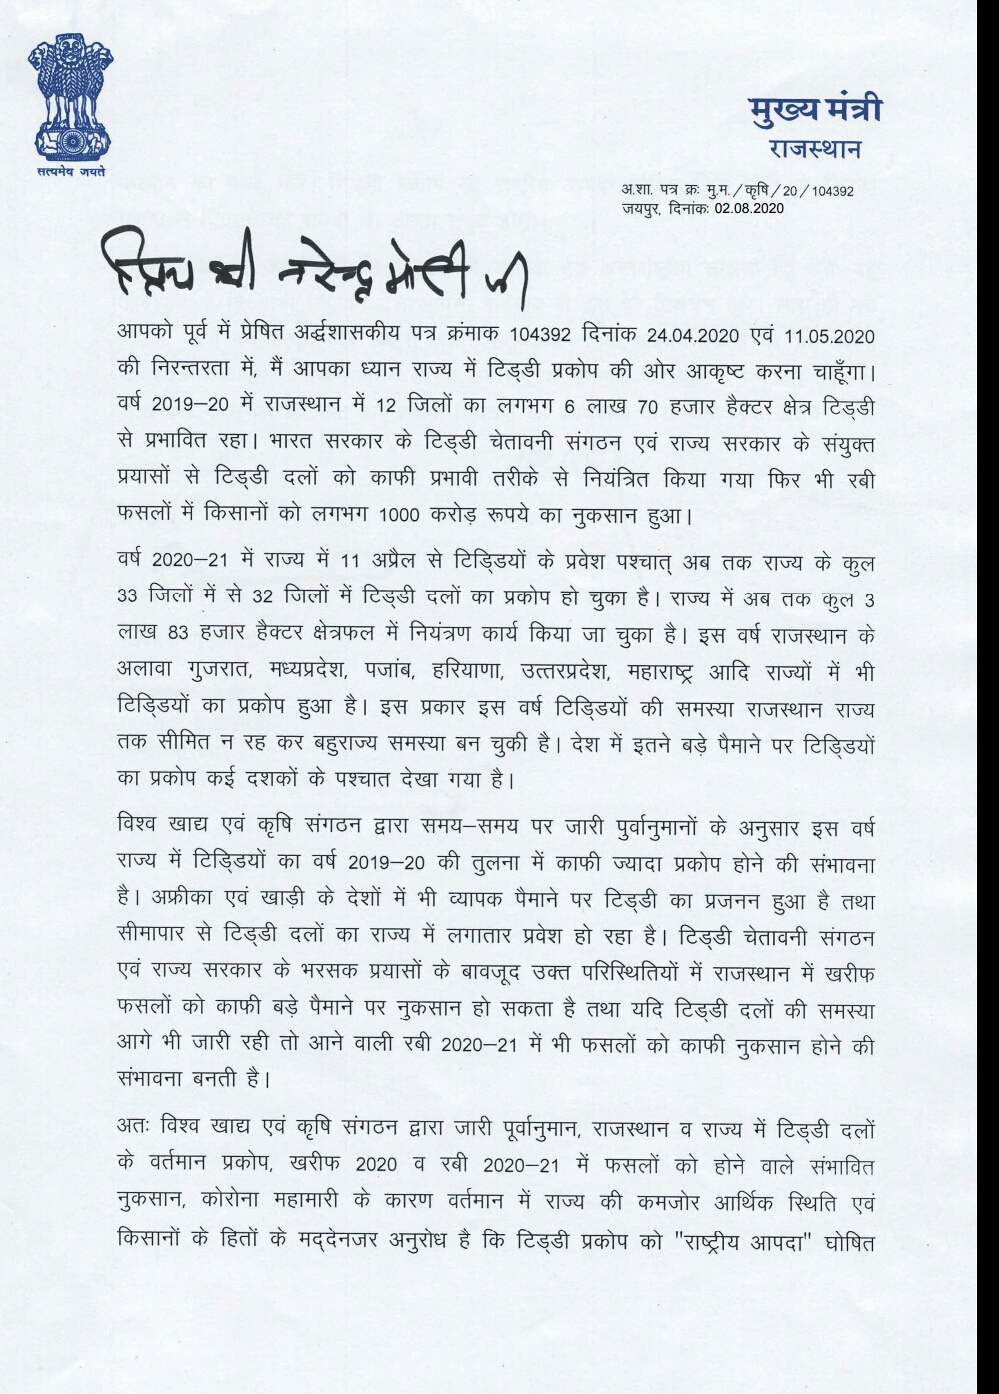 सत्यमेव जयते
मुख्य मंत्री
राजस्थान
अ.शा. पत्र क्रः मु.म./कृषि/20/104392
जयपुर, दिनांकः 02.08.2020
प्रिय श्री नरेन्द्र मोदी जी
आपको पूर्व में प्रेषित अर्द्धशासकीय पत्र क्रंमाक 104392 दिनांक 24.04.2020 एवं 11.05.2020
की निरन्तरता में, मैं आपका ध्यान राज्य में टिड्डी प्रकोप की ओर आकृष्ट करना चाहूँगा।
वर्ष 2019–20 में राजस्थान में 12 जिलों का लगभग 6 लाख 70 हजार हैक्टर क्षेत्र टिड्डी
से प्रभावित रहा। भारत सरकार के टिड्डी चेतावनी संगठन एवं राज्य सरकार के संयुक्त
प्रयासों से टिड्डी दलों को काफी प्रभावी तरीके से नियंत्रित किया गया फिर भी रबी
फसलों में किसानों को लगभग 1000 करोड़ रूपये का नुकसान हुआ।
वर्ष 2020–21 में राज्य में 11 अप्रैल से टिड्डियों के प्रवेश पश्चात् अब तक राज्य के कुल
33 जिलों में से 32 जिलों में टिड्डी दलों का प्रकोप हो चुका है। राज्य में अब तक कुल 3
लाख 83 हजार हैक्टर क्षेत्रफल में नियंत्रण कार्य किया जा चुका है। इस वर्ष राजस्थान के
अलावा गुजरात, मध्यप्रदेश, पजांब, हरियाणा, उत्तरप्रदेश, महाराष्ट्र आदि राज्यों में भी
टिड्डियों का प्रकोप हुआ है। इस प्रकार इस वर्ष टिड्डियों की समस्या राजस्थान राज्य
तक सीमित न रह कर बहुराज्य समस्या बन चुकी है। देश में इतने बड़े पैमाने पर टिड्डियों
का प्रकोप कई दशकों के पश्चात देखा गया है।
विश्व खाद्य एवं कृषि संगठन द्वारा समय–समय पर जारी पुर्वानुमानों के अनुसार इस वर्ष
राज्य में टिड्डियों का वर्ष 2019–20 की तुलना में काफी ज्यादा प्रकोप होने की संभावना
है। अफ्रीका एवं खाड़ी के देशों में भी व्यापक पैमाने पर टिड्डी का प्रजनन हुआ है तथा
सीमापार से टिड्डी दलों का राज्य में लगातार प्रवेश हो रहा है। टिड्डी चेतावनी संगठन
एवं राज्य सरकार के भरसक प्रयासों के बावजूद उक्त परिस्थितियों में राजस्थान में खरीफ
फसलों को काफी बड़े पैमाने पर नुकसान हो सकता है तथा यदि टिड्डी दलों की समस्या
आगे भी जारी रही तो आने वाली रबी 2020–21 में भी फसलों को काफी नुकसान होने की
संभावना बनती है।
अतः विश्व खाद्य एवं कृषि संगठन द्वारा जारी पूर्वानुमान, राजस्थान व राज्य में टिड्डी दलों
के वर्तमान प्रकोप, खरीफ 2020 व रबी 2020–21 में फसलों को होने वाले संभावित
नुकसान, कोरोना महामारी के कारण वर्तमान में राज्य की कमजोर आर्थिक स्थिति एवं
किसानों के हितों के मद्देनजर अनुरोध है कि टिड्डी प्रकोप को "राष्ट्रीय आपदा" घोषित